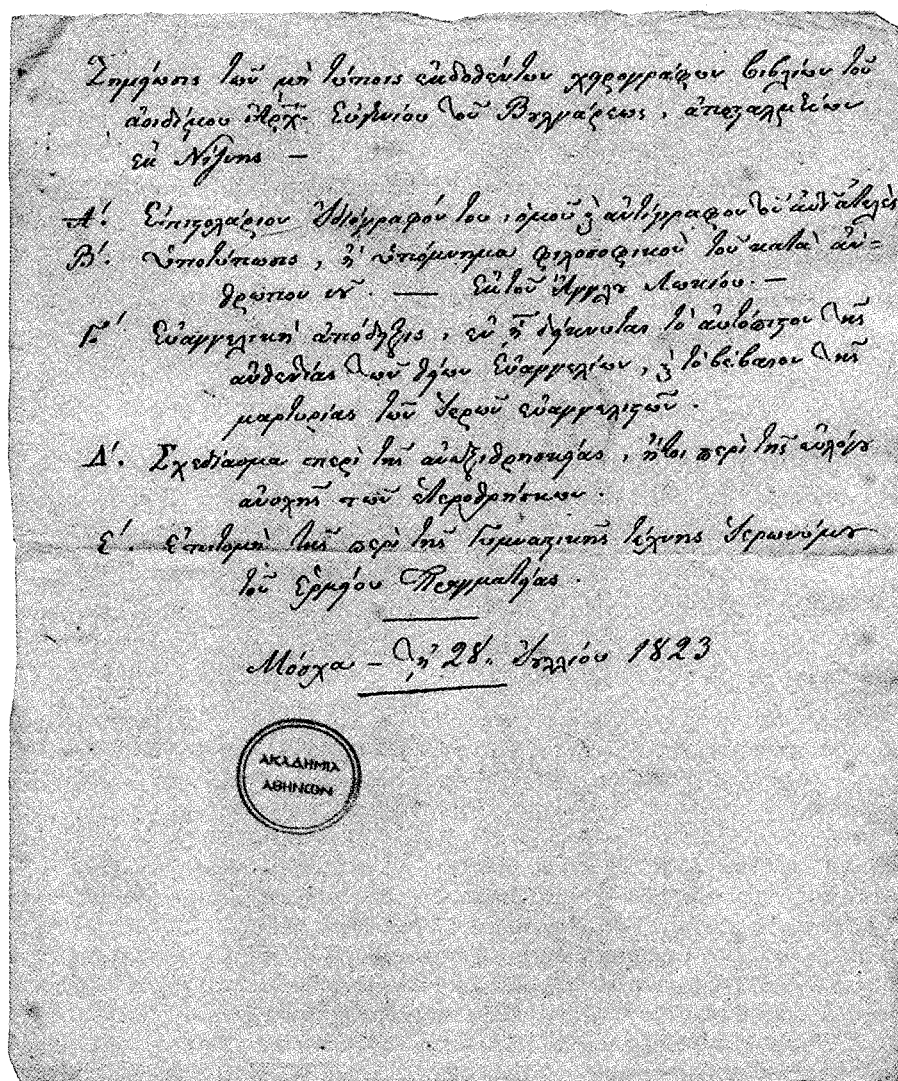 Σημείωσις τῶν μὴ τύποις ἐκδοθέντων χειρογράφων βιβλίων τοῦ
ἀοιδίμου Ἀρχ. Εὐγενίου τοῦ Βουλγάρεως, ἀποσταλμένων
ἐκ Νίζνης —
Α΄. Ἐπιστολάριον Ἰδιόγραφόν του, ὁμοῦ καὶ ἀντίγραφον τοῦ αὐτοῦ ἀτελὲς
Β΄. Ὑποτύπωσις, ἢ ὑπόμνημα φιλοσοφικοῦ τοῦ κατὰ ἄν-
θρωπον νοῦ. — Ἐκ τοῦ Ἄγγλου Λωκίου. —
Γ΄. Εὐαγγελικὴ ἀπόδειξις, ἐν ᾗ δείκνυται τὸ αὐτόπιστον τῆς
αὐθεντίας τῶν θείων Εὐαγγελίων, καὶ τὸ βέβαιον τῆς
μαρτυρίας τῶν Ἱερῶν εὐαγγελιστῶν.
Δ΄. Σχεδίασμα περὶ τῆς ἀνεξιθρησκείας, ἤτοι περὶ τῆς εὐλόγου
ἀνοχῆς τῶν ἑτεροθρήσκων.
Ε΄. Ἐπιτομὴ τῆς περὶ τῆς Γυμναστικῆς τέχνης Ἱερωνύμου
τοῦ Ἑρμείου Πραγματείας.
Μόσχα – τῇ 28. Ἰουλλίου 1823
ΑΚΑΔΗΜΙΑ
ΑΘΗΝΩΝ